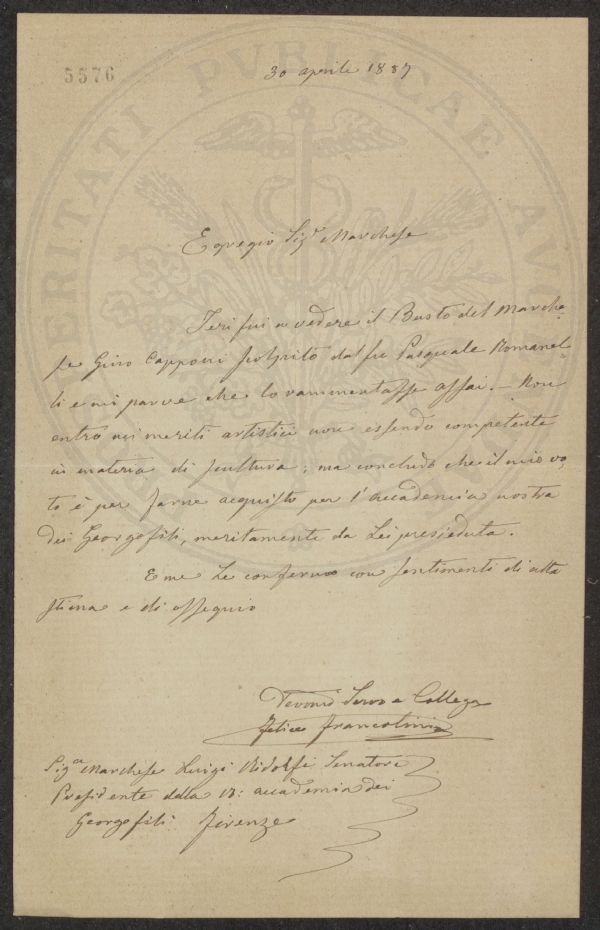 5576
30 aprile 1887
PROSPERITATI PVBLICAE AVGENDAE
Egregio Sigr Marchese
Ieri fui a vedere il Busto del Marche-
se Gino Capponi scolpito dal fu Pasquale Romanel-
li e mi parve che lo rammentasse assai. — Non
entro nei meriti artistici non essendo competente
in materia di scultura; ma concludo che il mio vo-
to è per farne acquisto per l'accademia nostra
dei Georgofili, meritamente da Lei presieduta.
E me Le confermo con sentimenti di alta
stima e di ossequio
Devono Servo e Collega
Felice Francolini
Sigre Marchese Luigi Ridolfi Senatore
Presidente della R: accademia dei
Georgofili Firenze